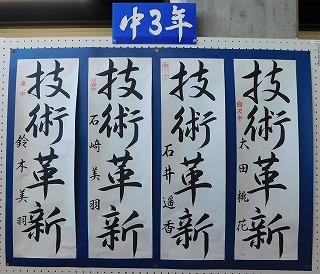 中3年
技術革新
白沢中
太田桃花
技術革新
石井遥香
技術革新
石﨑美羽
技術革新
鈴木美羽